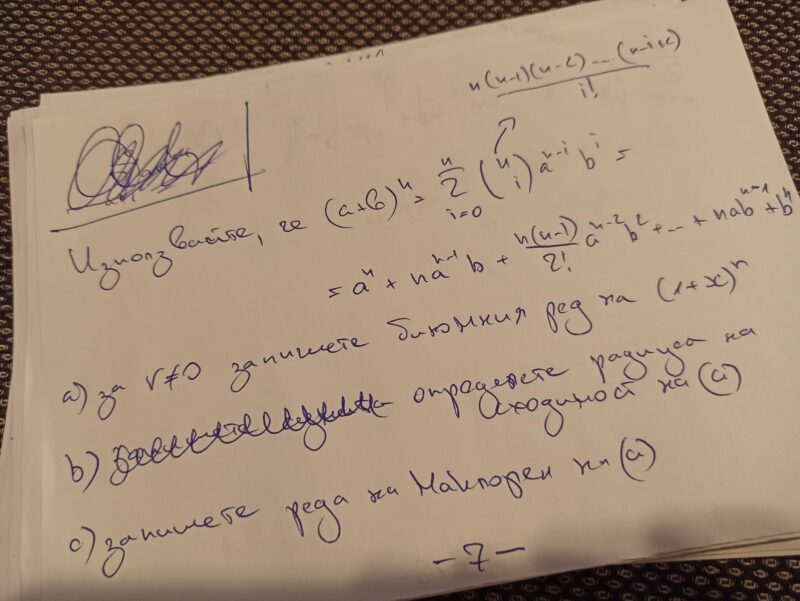 n(n-1)(n-2)...(n-i+1)
i!
Използвайте, че (a+b)ⁿ = Σ_{i=0}^{n} (n i) aⁿ⁻ⁱ bⁱ =
= aⁿ + naⁿ⁻¹b + n(n-1)/2! aⁿ⁻²b² + ... + nabⁿ⁻¹ + bⁿ
a) за r≠0 запишете биномния ред на (1+x)ⁿ
b) определете радиуса на
сходимост на (a)
c) запишете реда на Маклорен на (a)
-7-